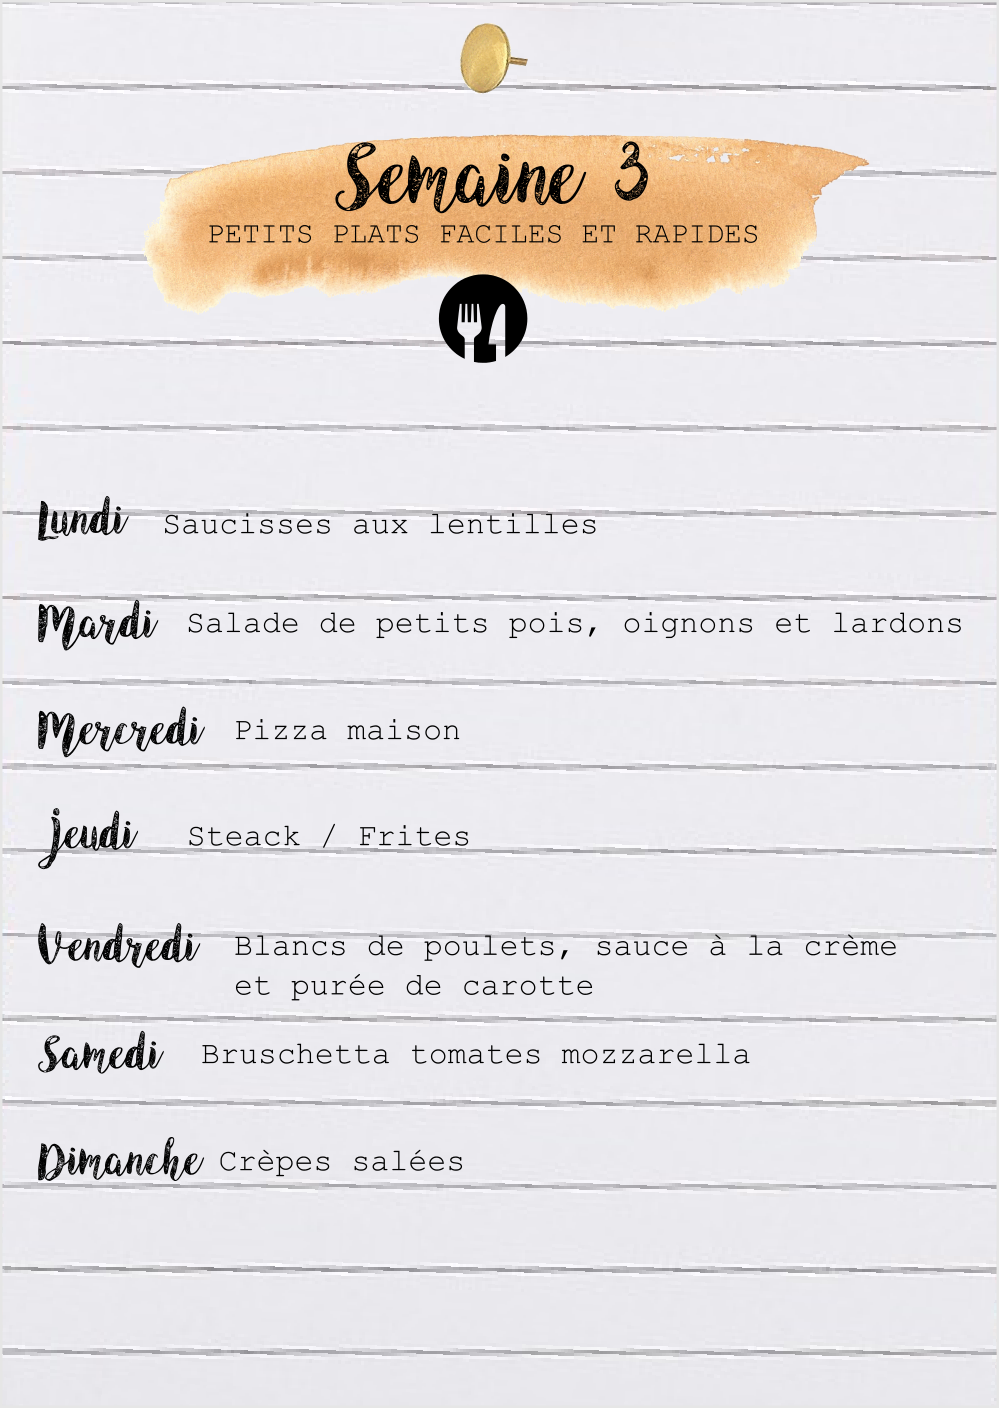 Semaine 3
PETITS PLATS FACILES ET RAPIDES
Lundi Saucisses aux lentilles
Mardi Salade de petits pois, oignons et lardons
Mercredi Pizza maison
Jeudi Steack / Frites
Vendredi Blancs de poulets, sauce à la crème
et purée de carotte
Samedi Bruschetta tomates mozzarella
Dimanche Crèpes salées